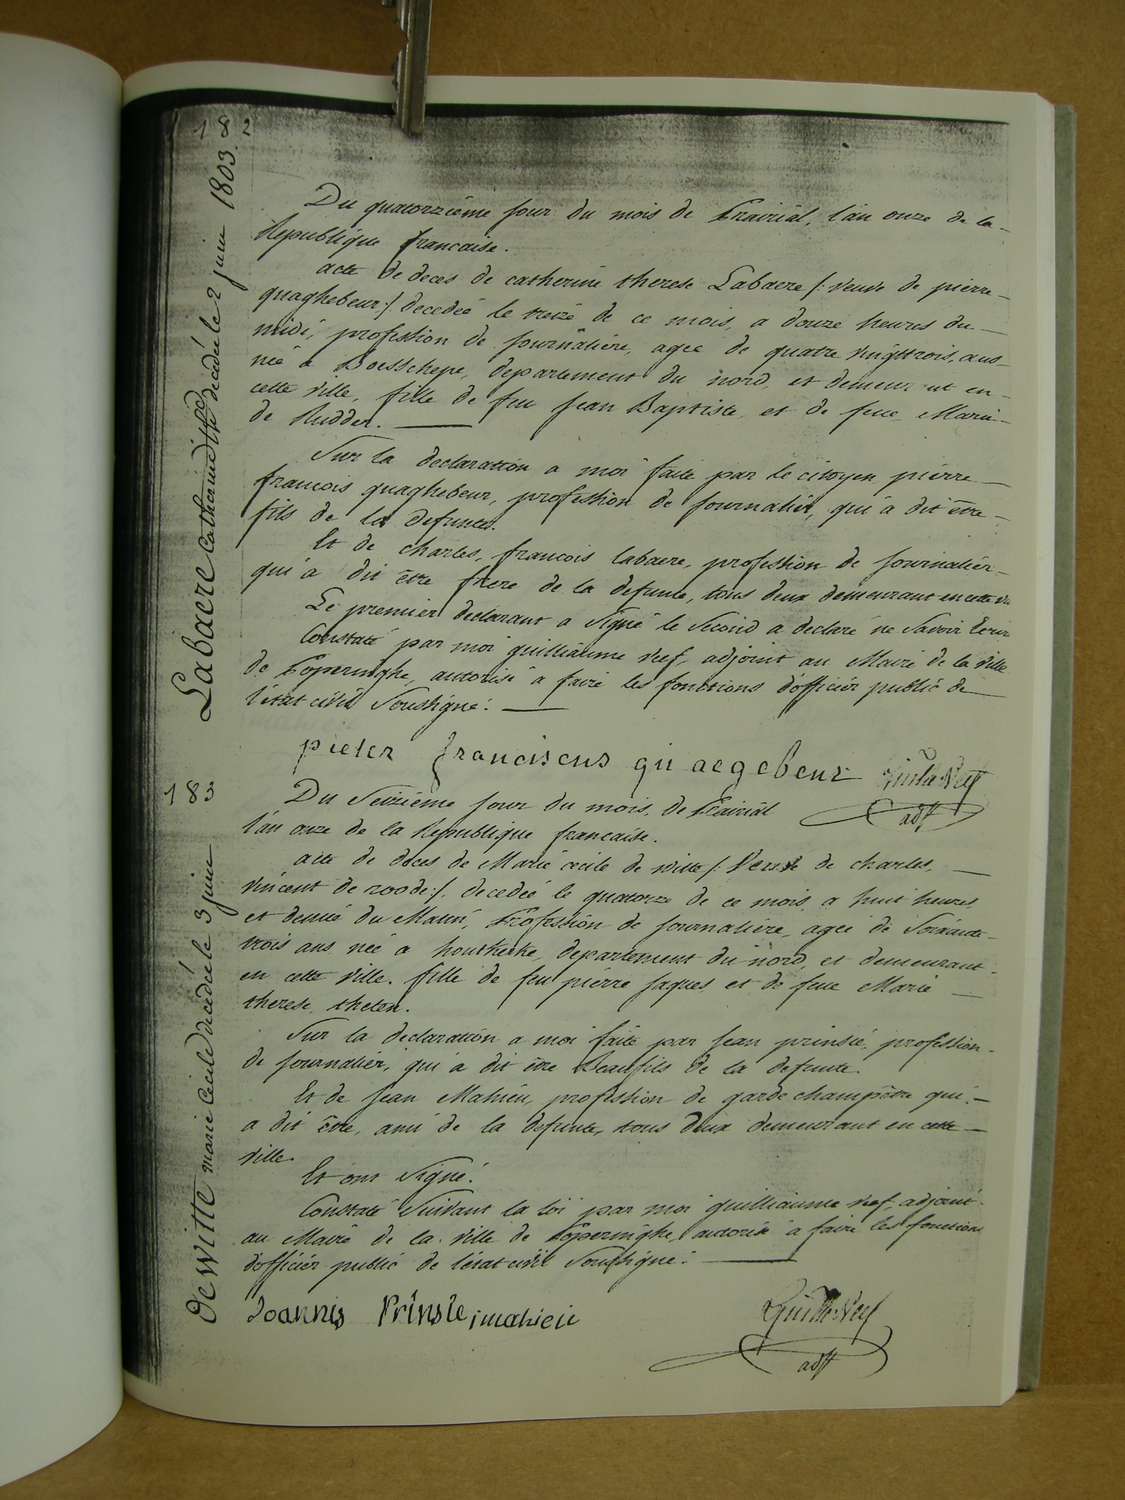 182
Labaere Catherine Thse décédée le 2 juin 1803.
Du quatorzieme jour du mois de Prairial, l'an onze de la
Republique francaise.
acte de deces de catherine therese Labaere /: veuve de pierre
quaghebeur :/ decedée le treize de ce mois, a douze heures du
midi, profession de journaliere, agee de quatre vingttrois ans
née a Boesschepe, departement du nord, et demeurant en
cette ville, fille de feu jean Baptiste et de feue Marie
de Rudder.
Sur la declaration a moi faite par le citoyen pierre
francois quaghebeur, profession de journalier, qui a dit être
fils de la defunte.
Et de charles, francois labaere, profession de journalier
qui a dit être frere de la defunte, tous deux demeurant en cette
Le premier declarant a signé le second a declaré ne savoir Ecrire
Constaté par moi guilliaume Neef, adjoint au Maire de la ville
de Poperinghe, autorisé a faire les fonctions d'officier public de
l'état civil soussigné.
pieter franciscus quaegebeur
adjt
183
Dewitte marie Cecile décédée le 3 juin
Du Seizieme jour du mois de Prairial
l'an onze de la Republique francaise.
acte de deces de Marie cecile de witte /: Veuve de charles,
vincent de roode :/ decedée le quatorze de ce mois a huit heures
et demie du Matin, Profession de journaliere, agée de Soixante
trois ans née a houtkerke, departement du nord, et demeurant
en cette ville. fille de feu pierre jaques et de feue Marie
therese thelen.
Sur la declaration a moi faite par jean prinsie, profession
de journalier, qui a dit être Beaufils de la defunte.
Et de jean Mahieu, profession de garde champêtre qui
a dit être ami de la defunte, tous deux demeurant en cette
ville.
Et ont signé.
Constaté Suivant la loi par moi guilliaume neef, adjoint
au Maire de la ville de Poperinghe autorisé a faire les fonctions
d'officier public de l'etat civil Soussigné.
Joannis Prinsie j mahieu
adjt